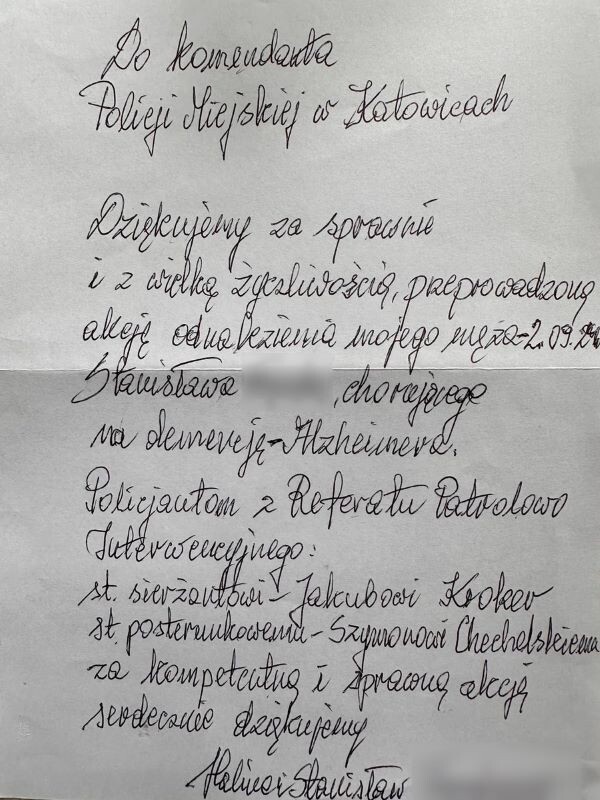 Do komendanta
Policji Miejskiej w Katowicach
Dziękujemy za sprawnie
i z wielką życzliwością, przeprowadzoną
akcję odnalezienia mojego męża - 2.09.24
Stanisława , chorującego
na demencję - Alzheimera.
Policjantom z Referatu Patrolowo
Interwencyjnego:
st. sierżantowi - Jakubowi
st. posterunkowemu - Szymonowi Chechelskiemu
za kompetentną i sprawną akcją
serdecznie dziękujemy
Halina i Stanisław